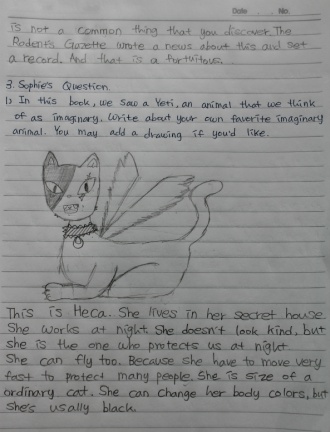 Date No.
is not a common thing that you discover. The
Rodents Gazette wrote a news about this and set
a record. And that is a fortuitous.
3. Sophie's Question.
1) In this book, we saw a Yeti, an animal that we think
of as imaginary. Write about your own favorite imaginary
animal. You may add a drawing if you'd like.
This is Heca. She lives in her secret house.
She works at night. She doesn't look kind, but
she is the one who protects us at night
She can fly too. Because she have to move very
fast to protect many people. She is size of a
ordinary cat. She can change her body colors, but
she's usally black.